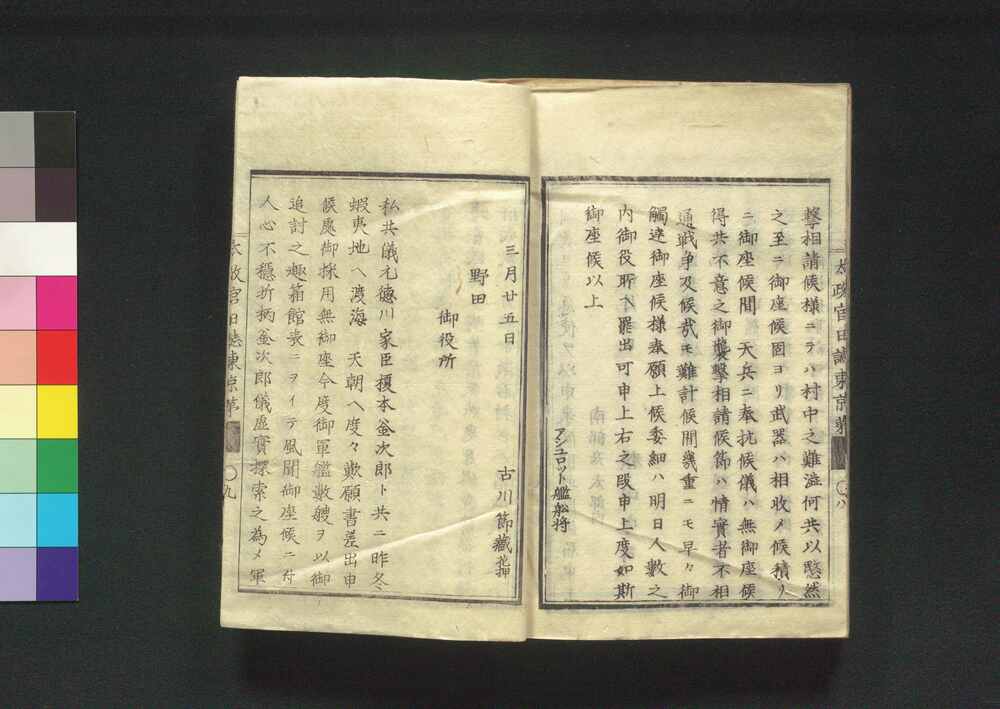 太政官日誌東京第
〇八
撃相請候様ニテハ村中之難澁何共以愍然
之至ニ御座候固ヨリ武器ハ相收メ候積リ
ニ御座候間　天兵ニ奉抗候儀ハ無御座候
得共不意之御襲撃相請候節ハ情實者不相
通戦争及候哉モ難計候間幾重ニモ早々御
觸達御座候様奉願上候委細ハ明日人數之
内御役所ヘ罷出可申上右之段申上度如斯
御座候以上
アシユロット艦舩将
三月廿五日
古川節藏花押
野田
御役所
私共儀元徳川家臣榎本釜次郎ト共ニ昨冬
蝦夷地ヘ渡海　天朝ヘ度々歎願書差出申
候處御採用無御座今度御軍艦數艘ヲ以御
追討之趣箱館表ニヲイテ風聞御座候ニ付
人心不穏折柄釜次郎儀虚實探索之為メ軍
太政官日誌東京第
〇九